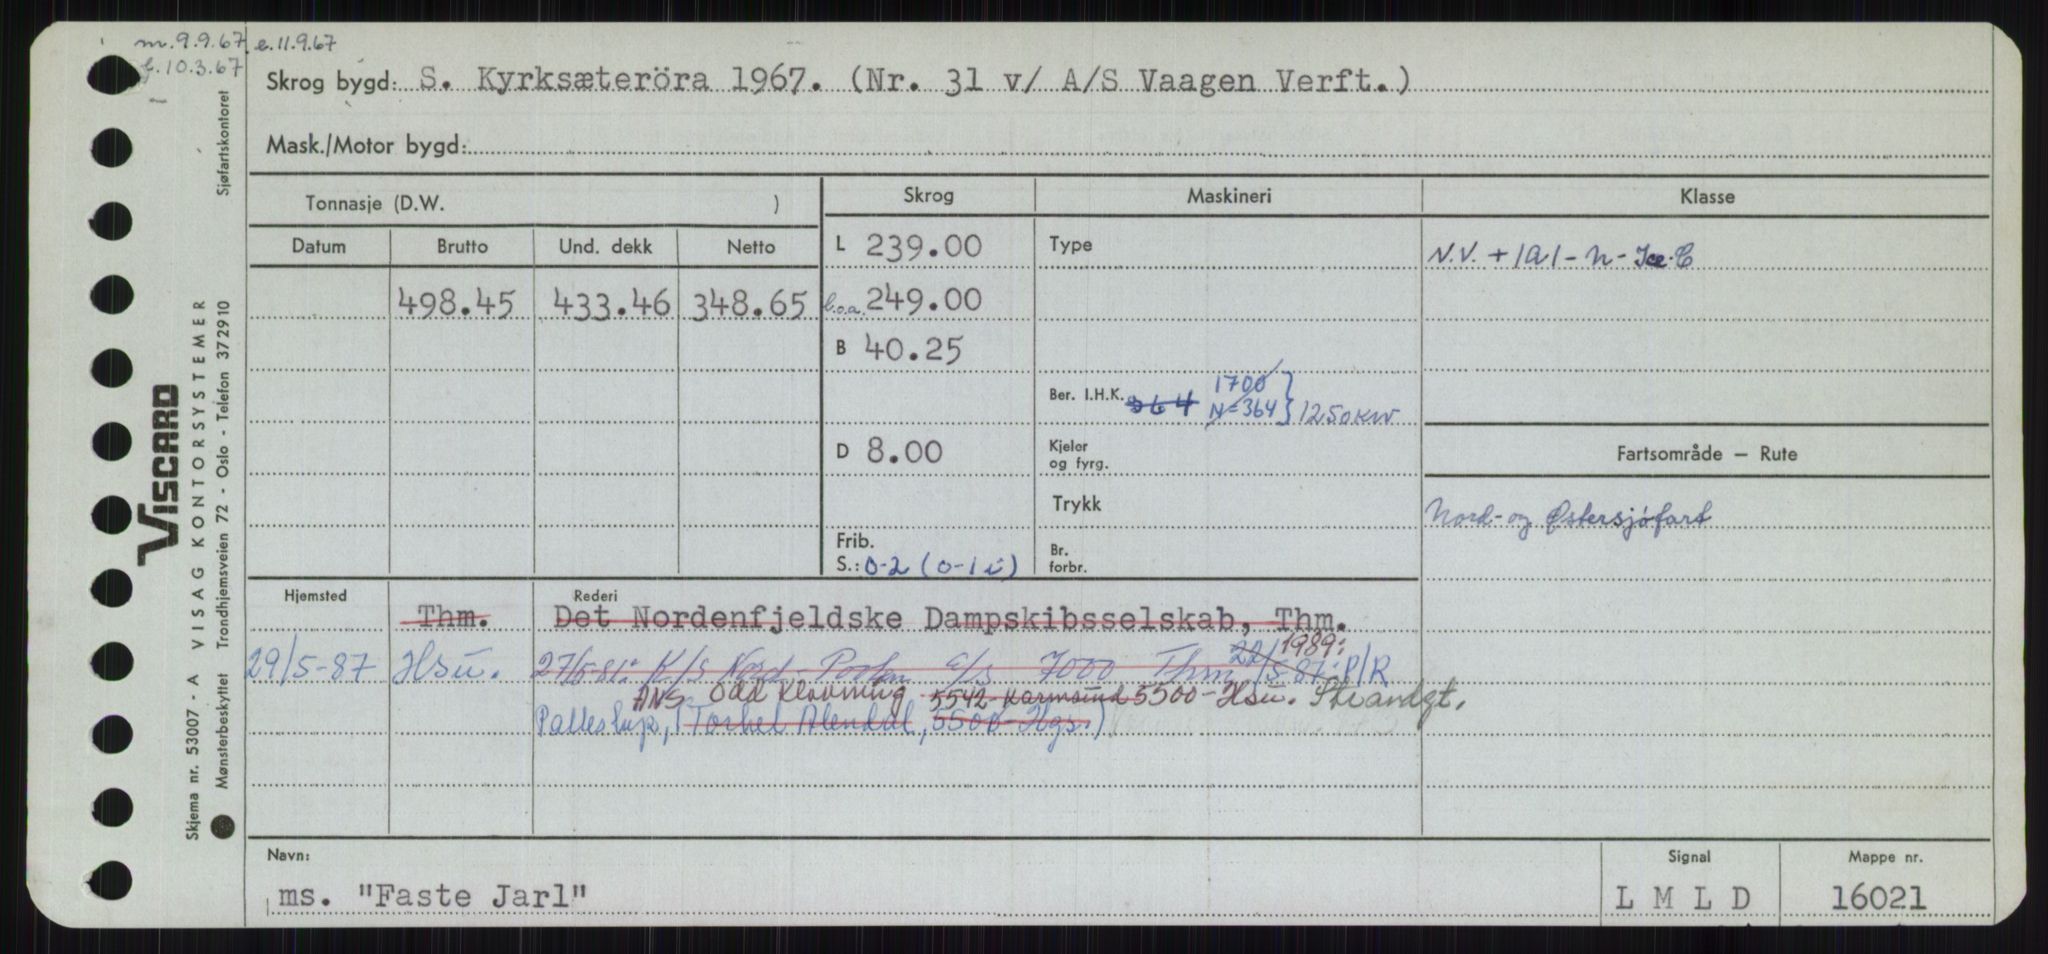 m.9.9.67 e.11.9.67
b.10.3.67
Skrog bygd: S. Kyrksæteröra 1967. (Nr. 31 v/ A/S Vaagen Verft.)
Mask./Motor bygd:
Tonnasje (D.W. )
Skrog Maskineri Klasse
Datum Brutto Und. dekk Netto
L 239.00 Type N.V. + 1A1 - N - Ice-C
498.45 433.46 348.65 l.o.a. 249.00
B 40.25
Ber. I.H.K. 364 1700 N=364 } 1250 KW
D 8.00 Kjeler og fyrg.
Fartsområde — Rute
Trykk Nord- og Østersjøfart
Frib.
S.: 0-2 (0-1 i) Br. forbr.
Hjemsted Rederi
Thm. Det Nordenfjeldske Dampskibsselskab, Thm.
1989:
29/5-87 Hsu. 27/5-81: K/S Nord 7000 Thm 22/5-87: P/R
ANS Odd Klovning 5542-Karmsund 5500-Hsu. Strandgt.
Palleskip, (Torkel Alendal, 5500-Hgs.)
Navn: Signal Mappe nr.
ms. "Faste Jarl" L M L D 16021
VISCARD
Skjema nr. 53007 - A VISAG KONTORSYSTEMER
Mønsterbeskyttet Trondhjemsveien 72 - Oslo - Telefon 372910 Sjøfartskontoret